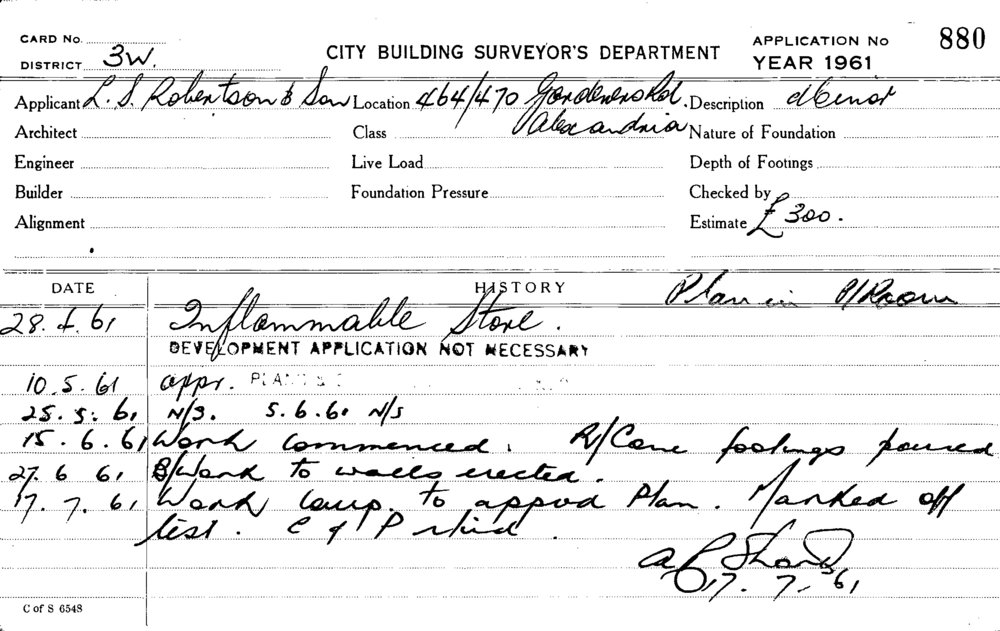 CARD No.
DISTRICT 3W.
CITY BUILDING SURVEYOR'S DEPARTMENT
APPLICATION No 880
YEAR 1961
Applicant L. S. Robertson & Son Location 464/470 Gardeners Rd. Description Minor
Architect Class Alexandria Nature of Foundation
Engineer Live Load Depth of Footings
Builder Foundation Pressure Checked by
Alignment Estimate £ 300.
DATE HISTORY Plan in P/Room
28. 4. 61 Inflammable Store.
DEVELOPMENT APPLICATION NOT NECESSARY
10. 5. 61 appr. PLAN
25. 5. 61 N/S. 5. 6. 61 N/S
15. 6. 61 Work commenced. R/Conc footings poured
27. 6 61 B/Work to walls erected.
17. 7. 61 Work comp. to appvd Plan. Marked off
list. C of P
17. 7. 61
C of S 6548